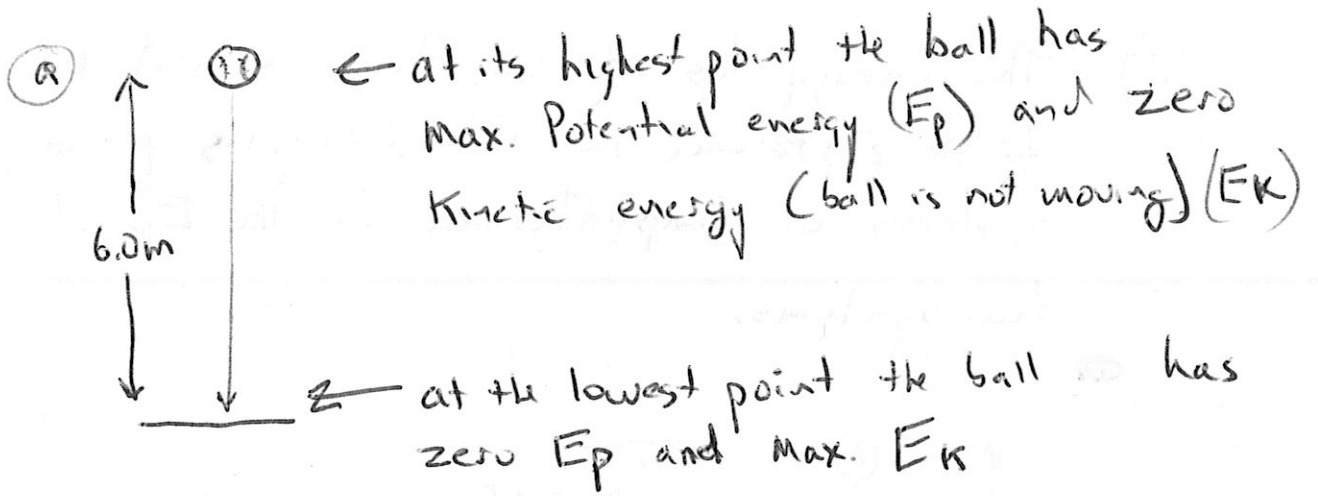 a
← at its highest point the ball has
max. Potential energy (Ep) and zero
Kinetic energy (ball is not moving) (EK)
6.0m
← at the lowest point the ball has
zero Ep and max. EK